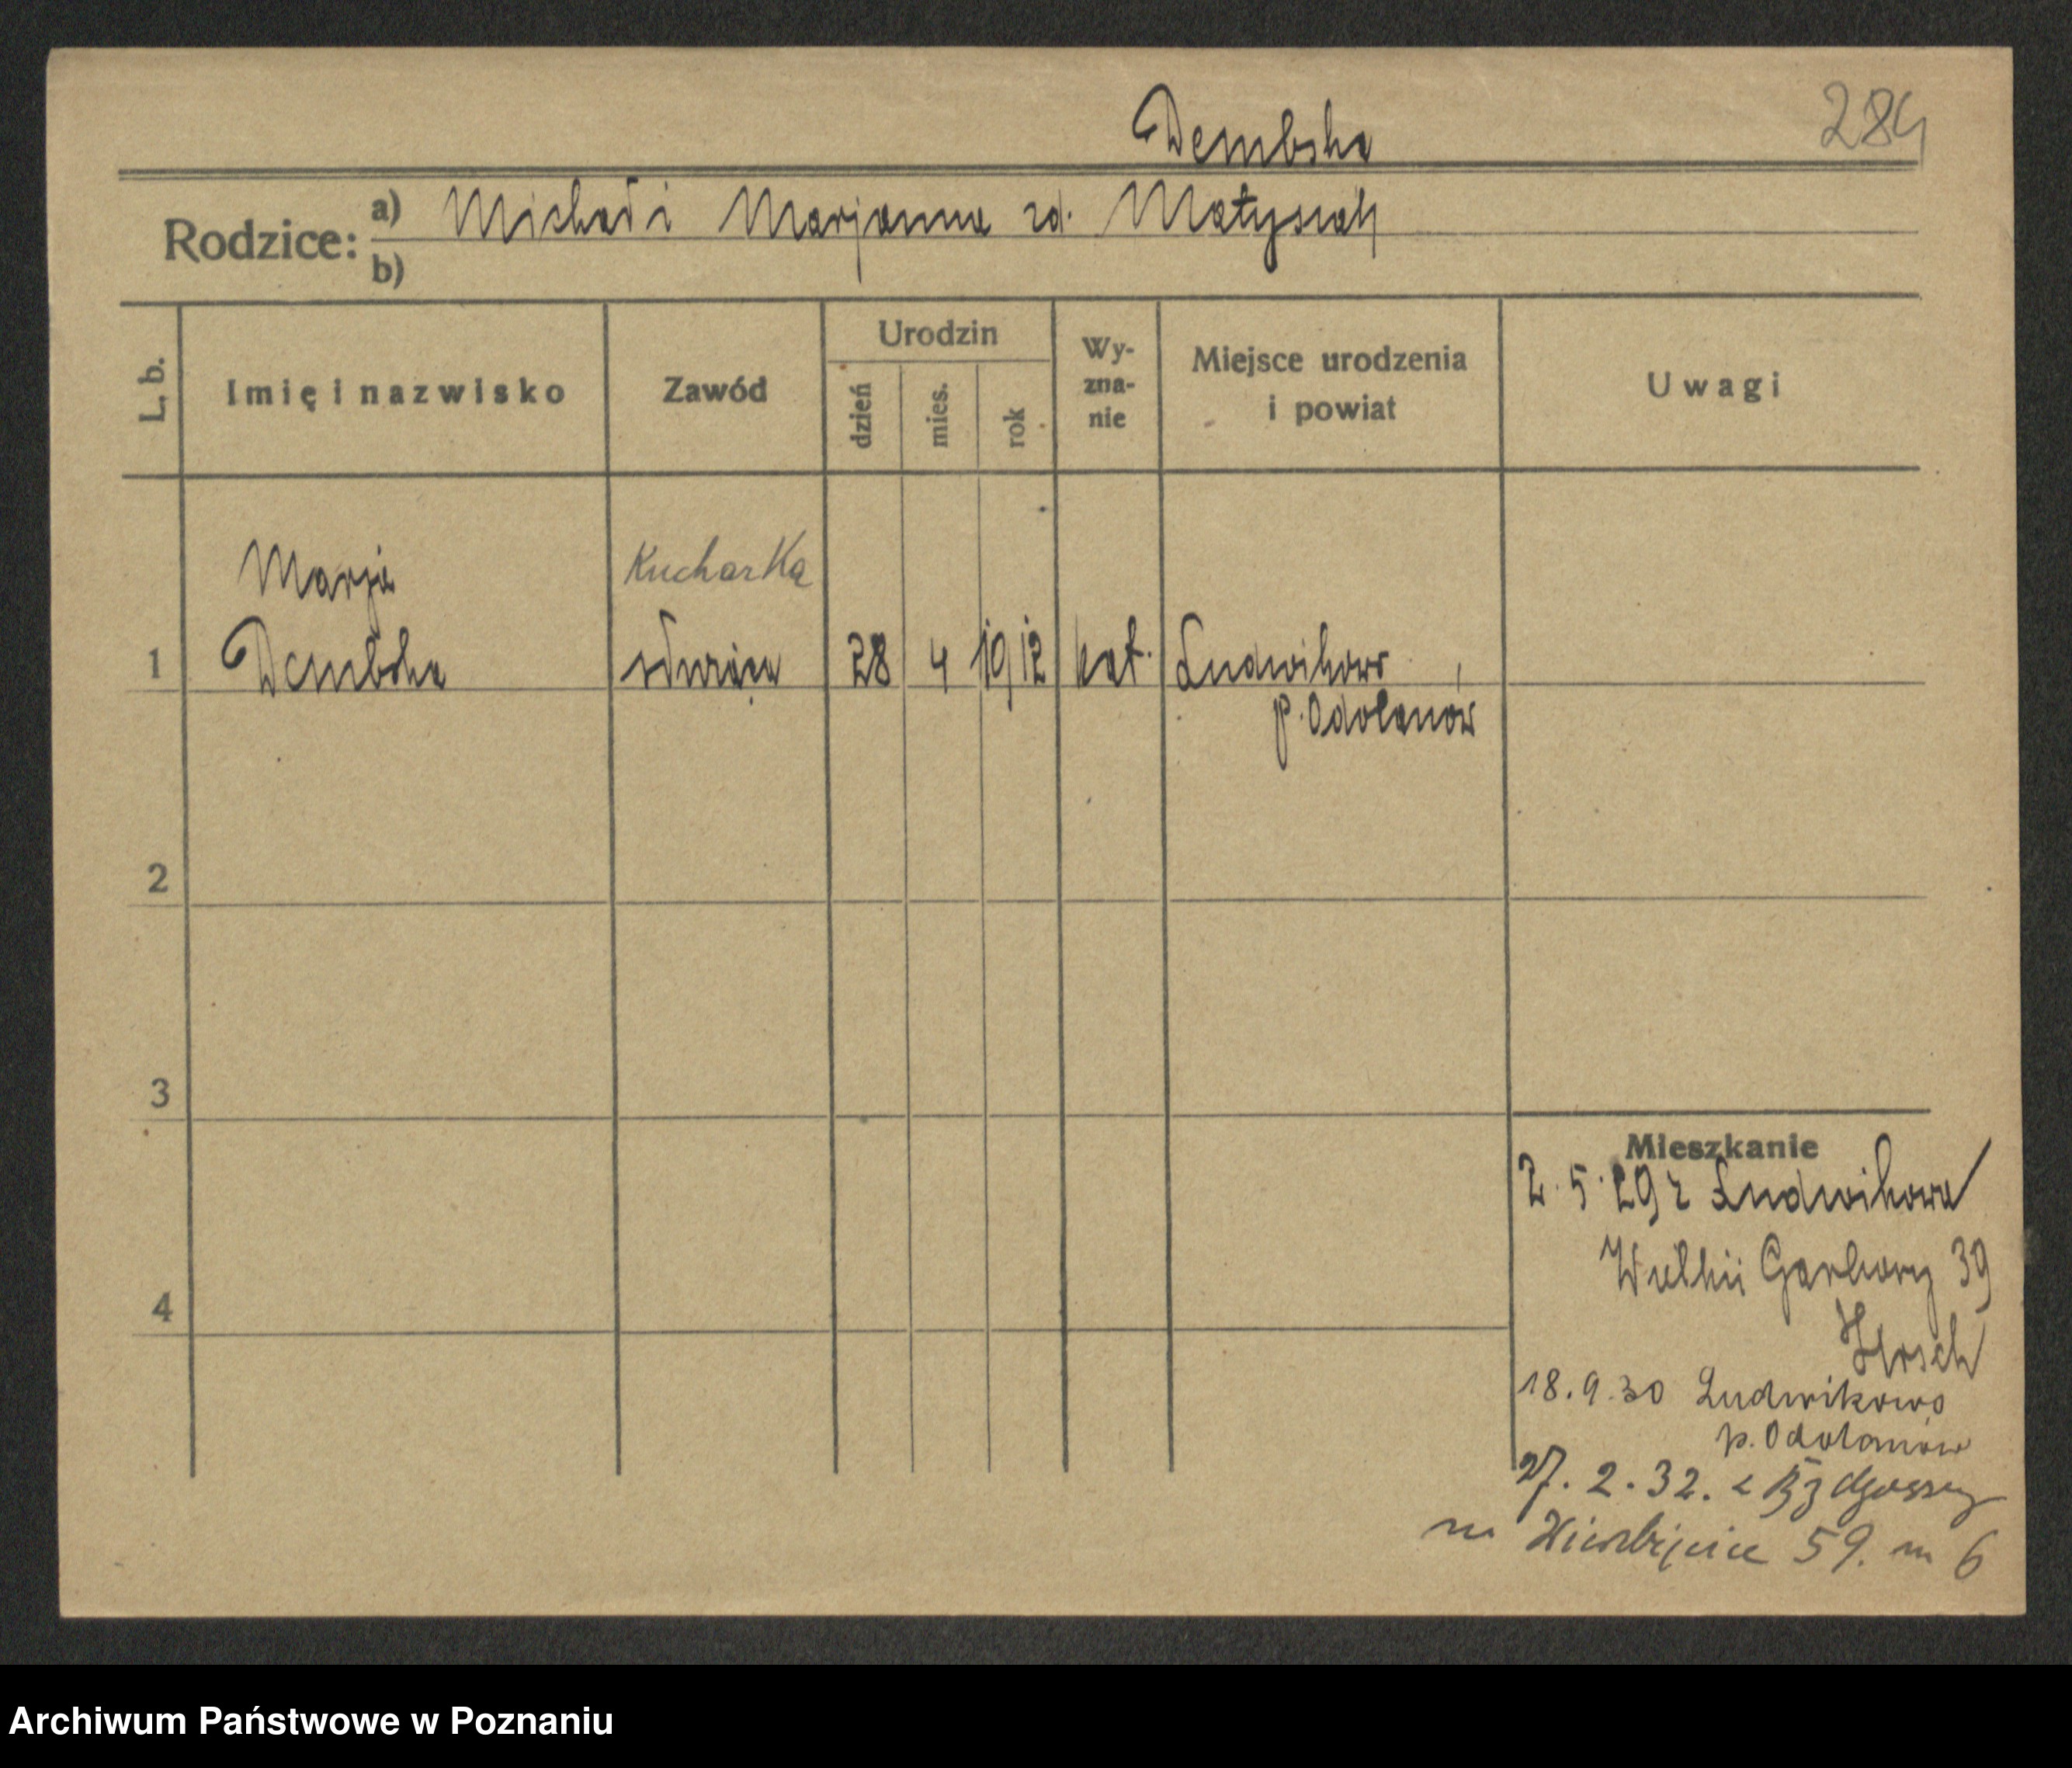 Dembska
284
Rodzice:
a) Michał i Marjanna zd. Matysiak
b)
L. b.
Imię i nazwisko
Zawód
Urodzin
dzień
mies.
rok
Wy-
zna-
nie
Miejsce urodzenia
i powiat
Uwagi
Marja
Kucharka
1 Dembska służąca 28 4 1912 kat. Ludwikowo
p. Odolanów
2
3
4
Mieszkanie
2. 5. 29 z Ludwikowa
Wielkie Garbary 39
Hirsch
18. 9. 30 Ludwikowo
p. Odolanów
27. 2. 32. z Bydgoszczy
na Wierzbięcice 59. m 6
Archiwum Państwowe w Poznaniu